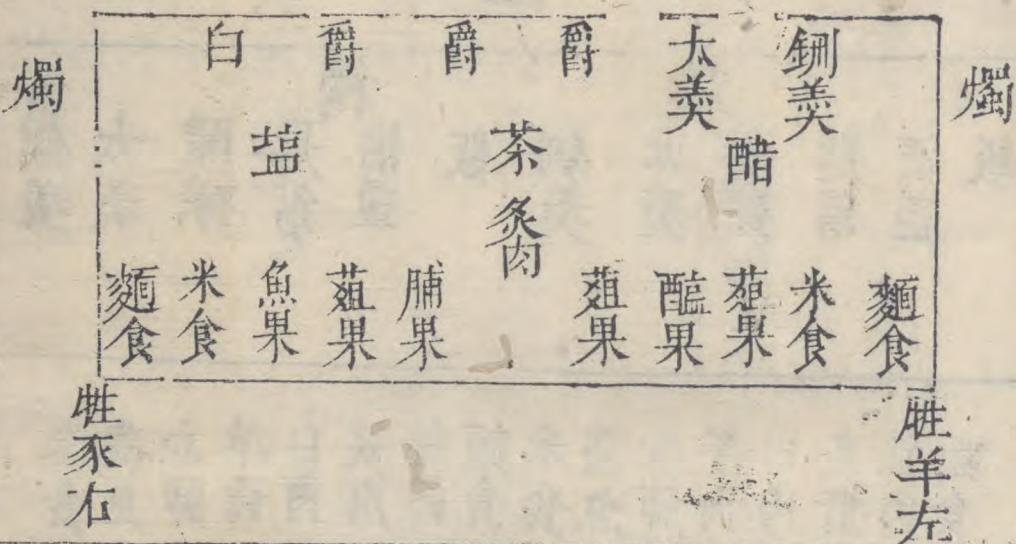 燭
鉶羹
太羹
爵
爵
爵
白
燭
醋
茶
炙肉
塩
麵食
米食
葅果
醢果
葅果
脯果
葅果
魚果
米食
麵食
牲羊左
牲豕右